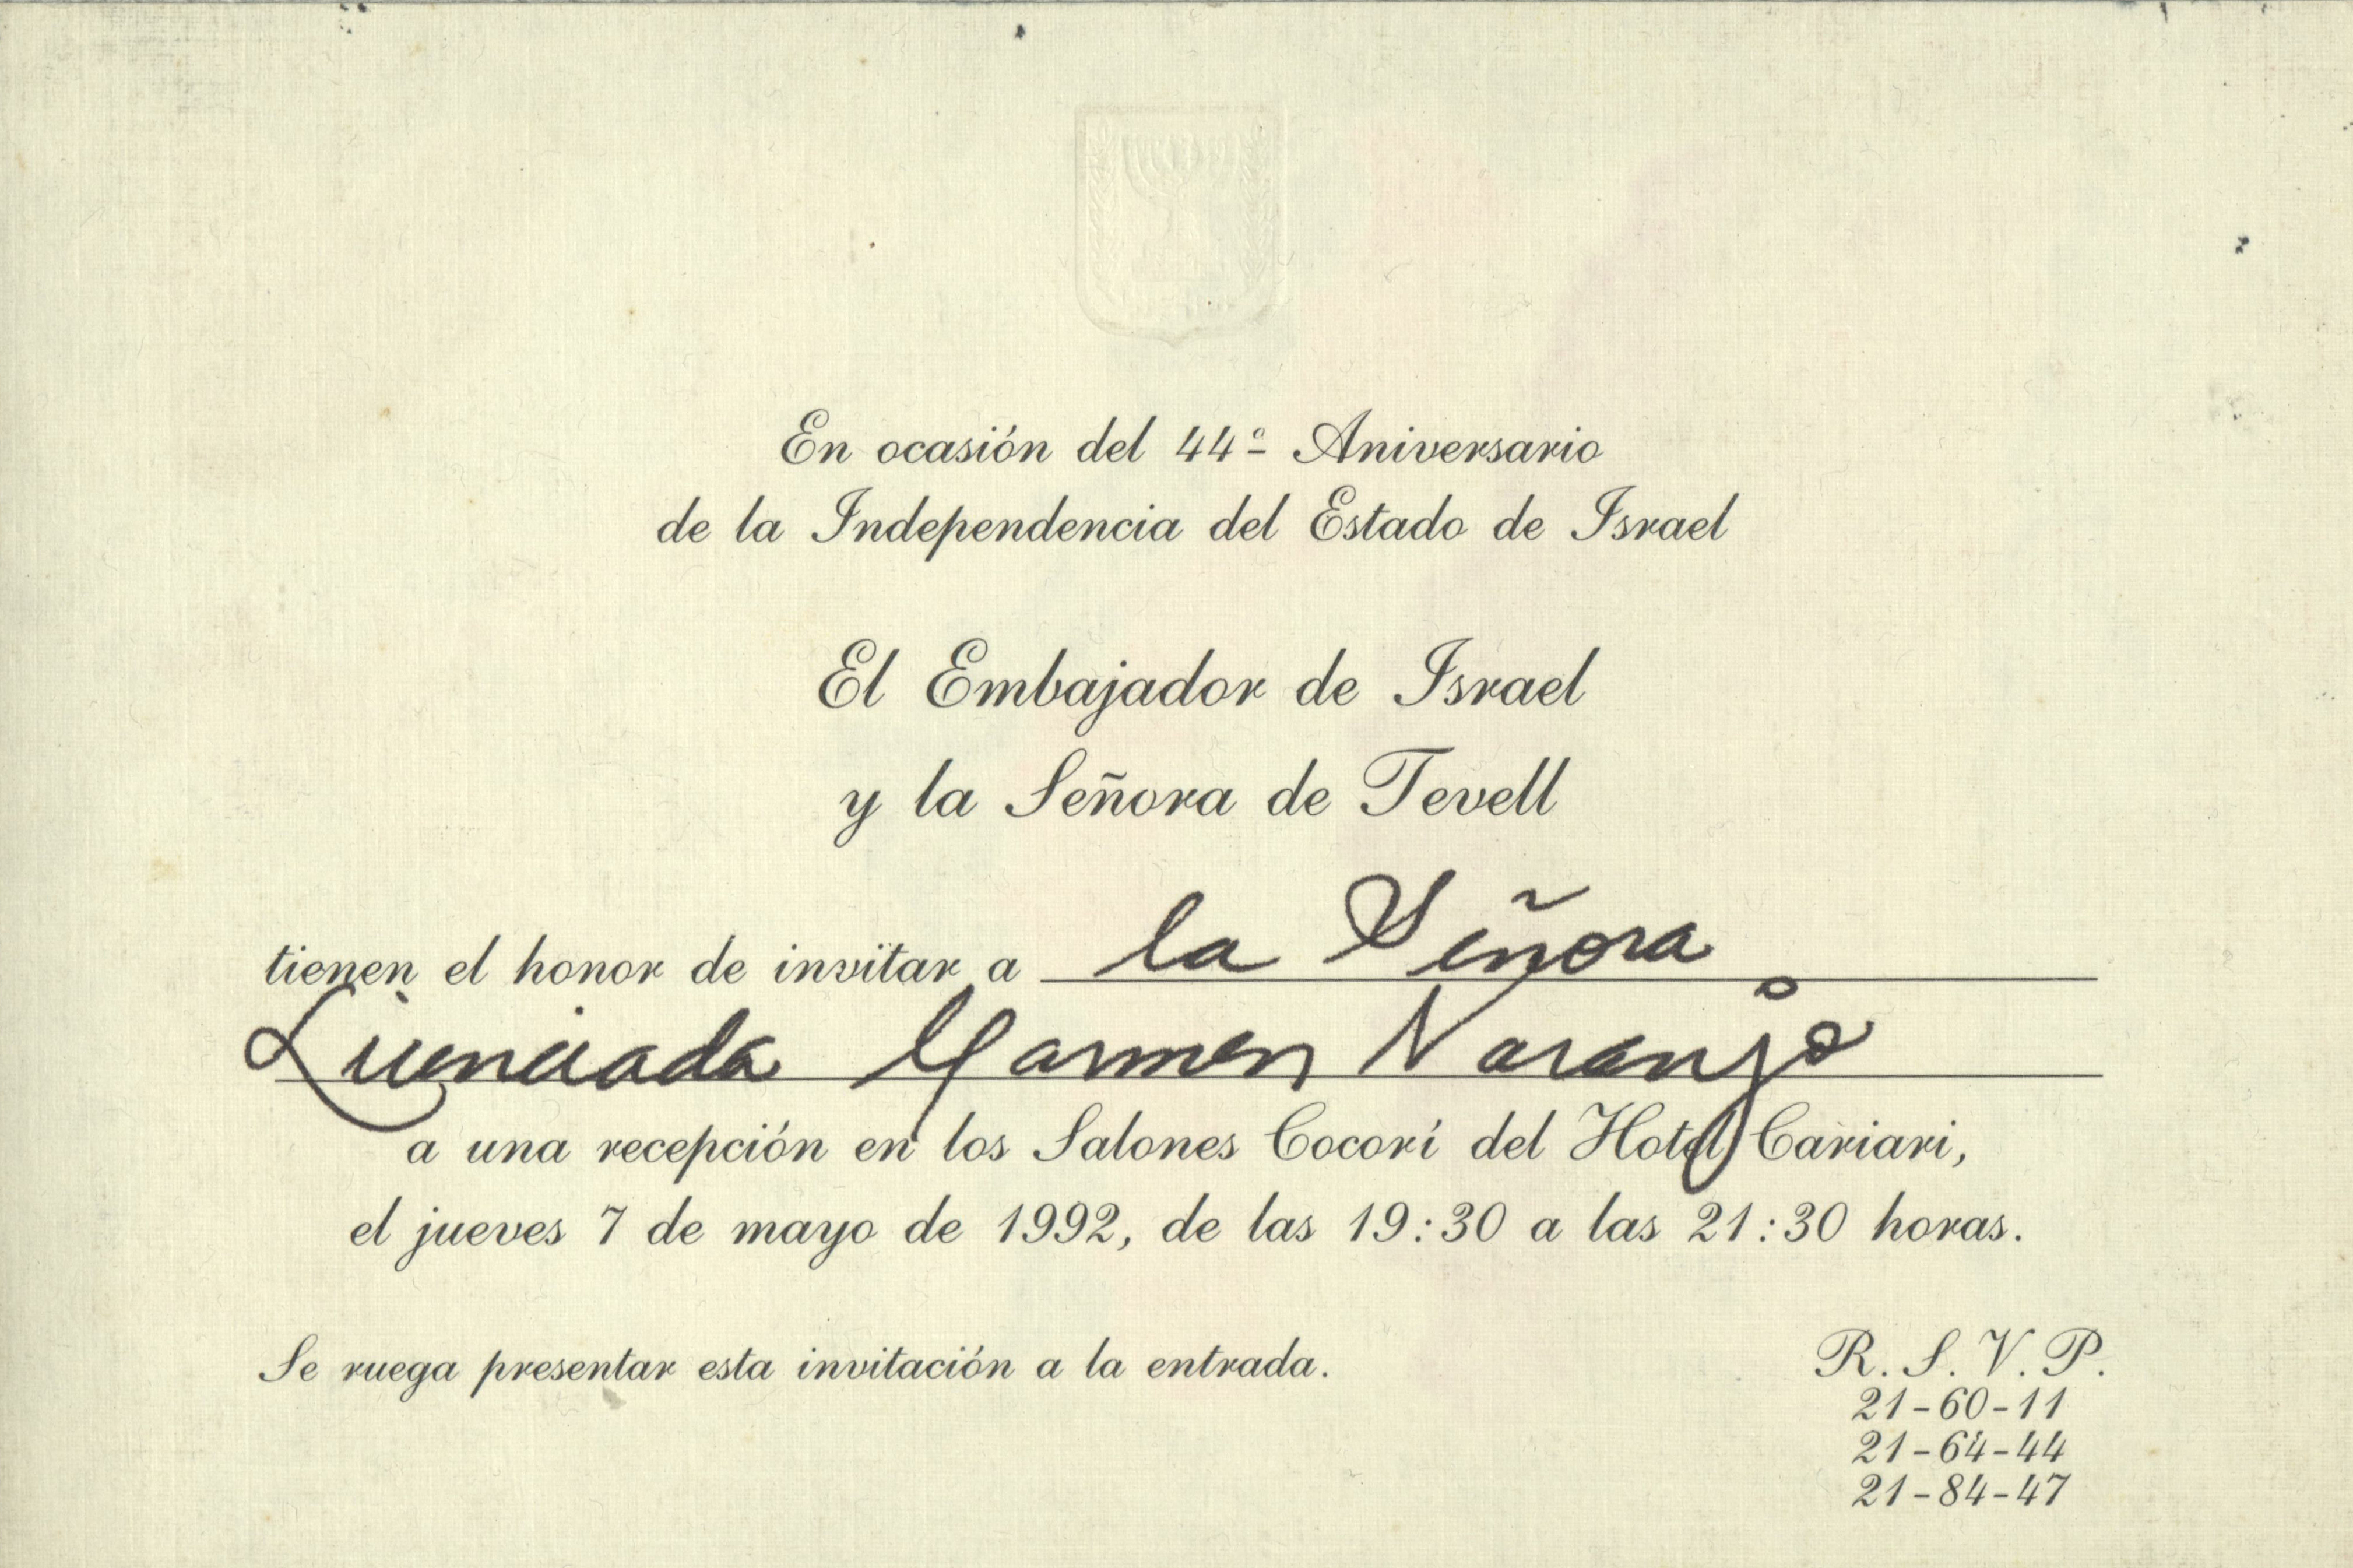 En ocasión del 44º Aniversario
de la Independencia del Estado de Israel
El Embajador de Israel
y la Señora de Tevell
tienen el honor de invitar a la Señora
Licenciada Carmen Naranjo
a una recepción en los Salones Cocorí del Hotel Cariari,
el jueves 7 de mayo de 1992, de las 19:30 a las 21:30 horas.
Se ruega presentar esta invitación a la entrada.
R. S. V. P.
21-60-11
21-64-44
21-84-47